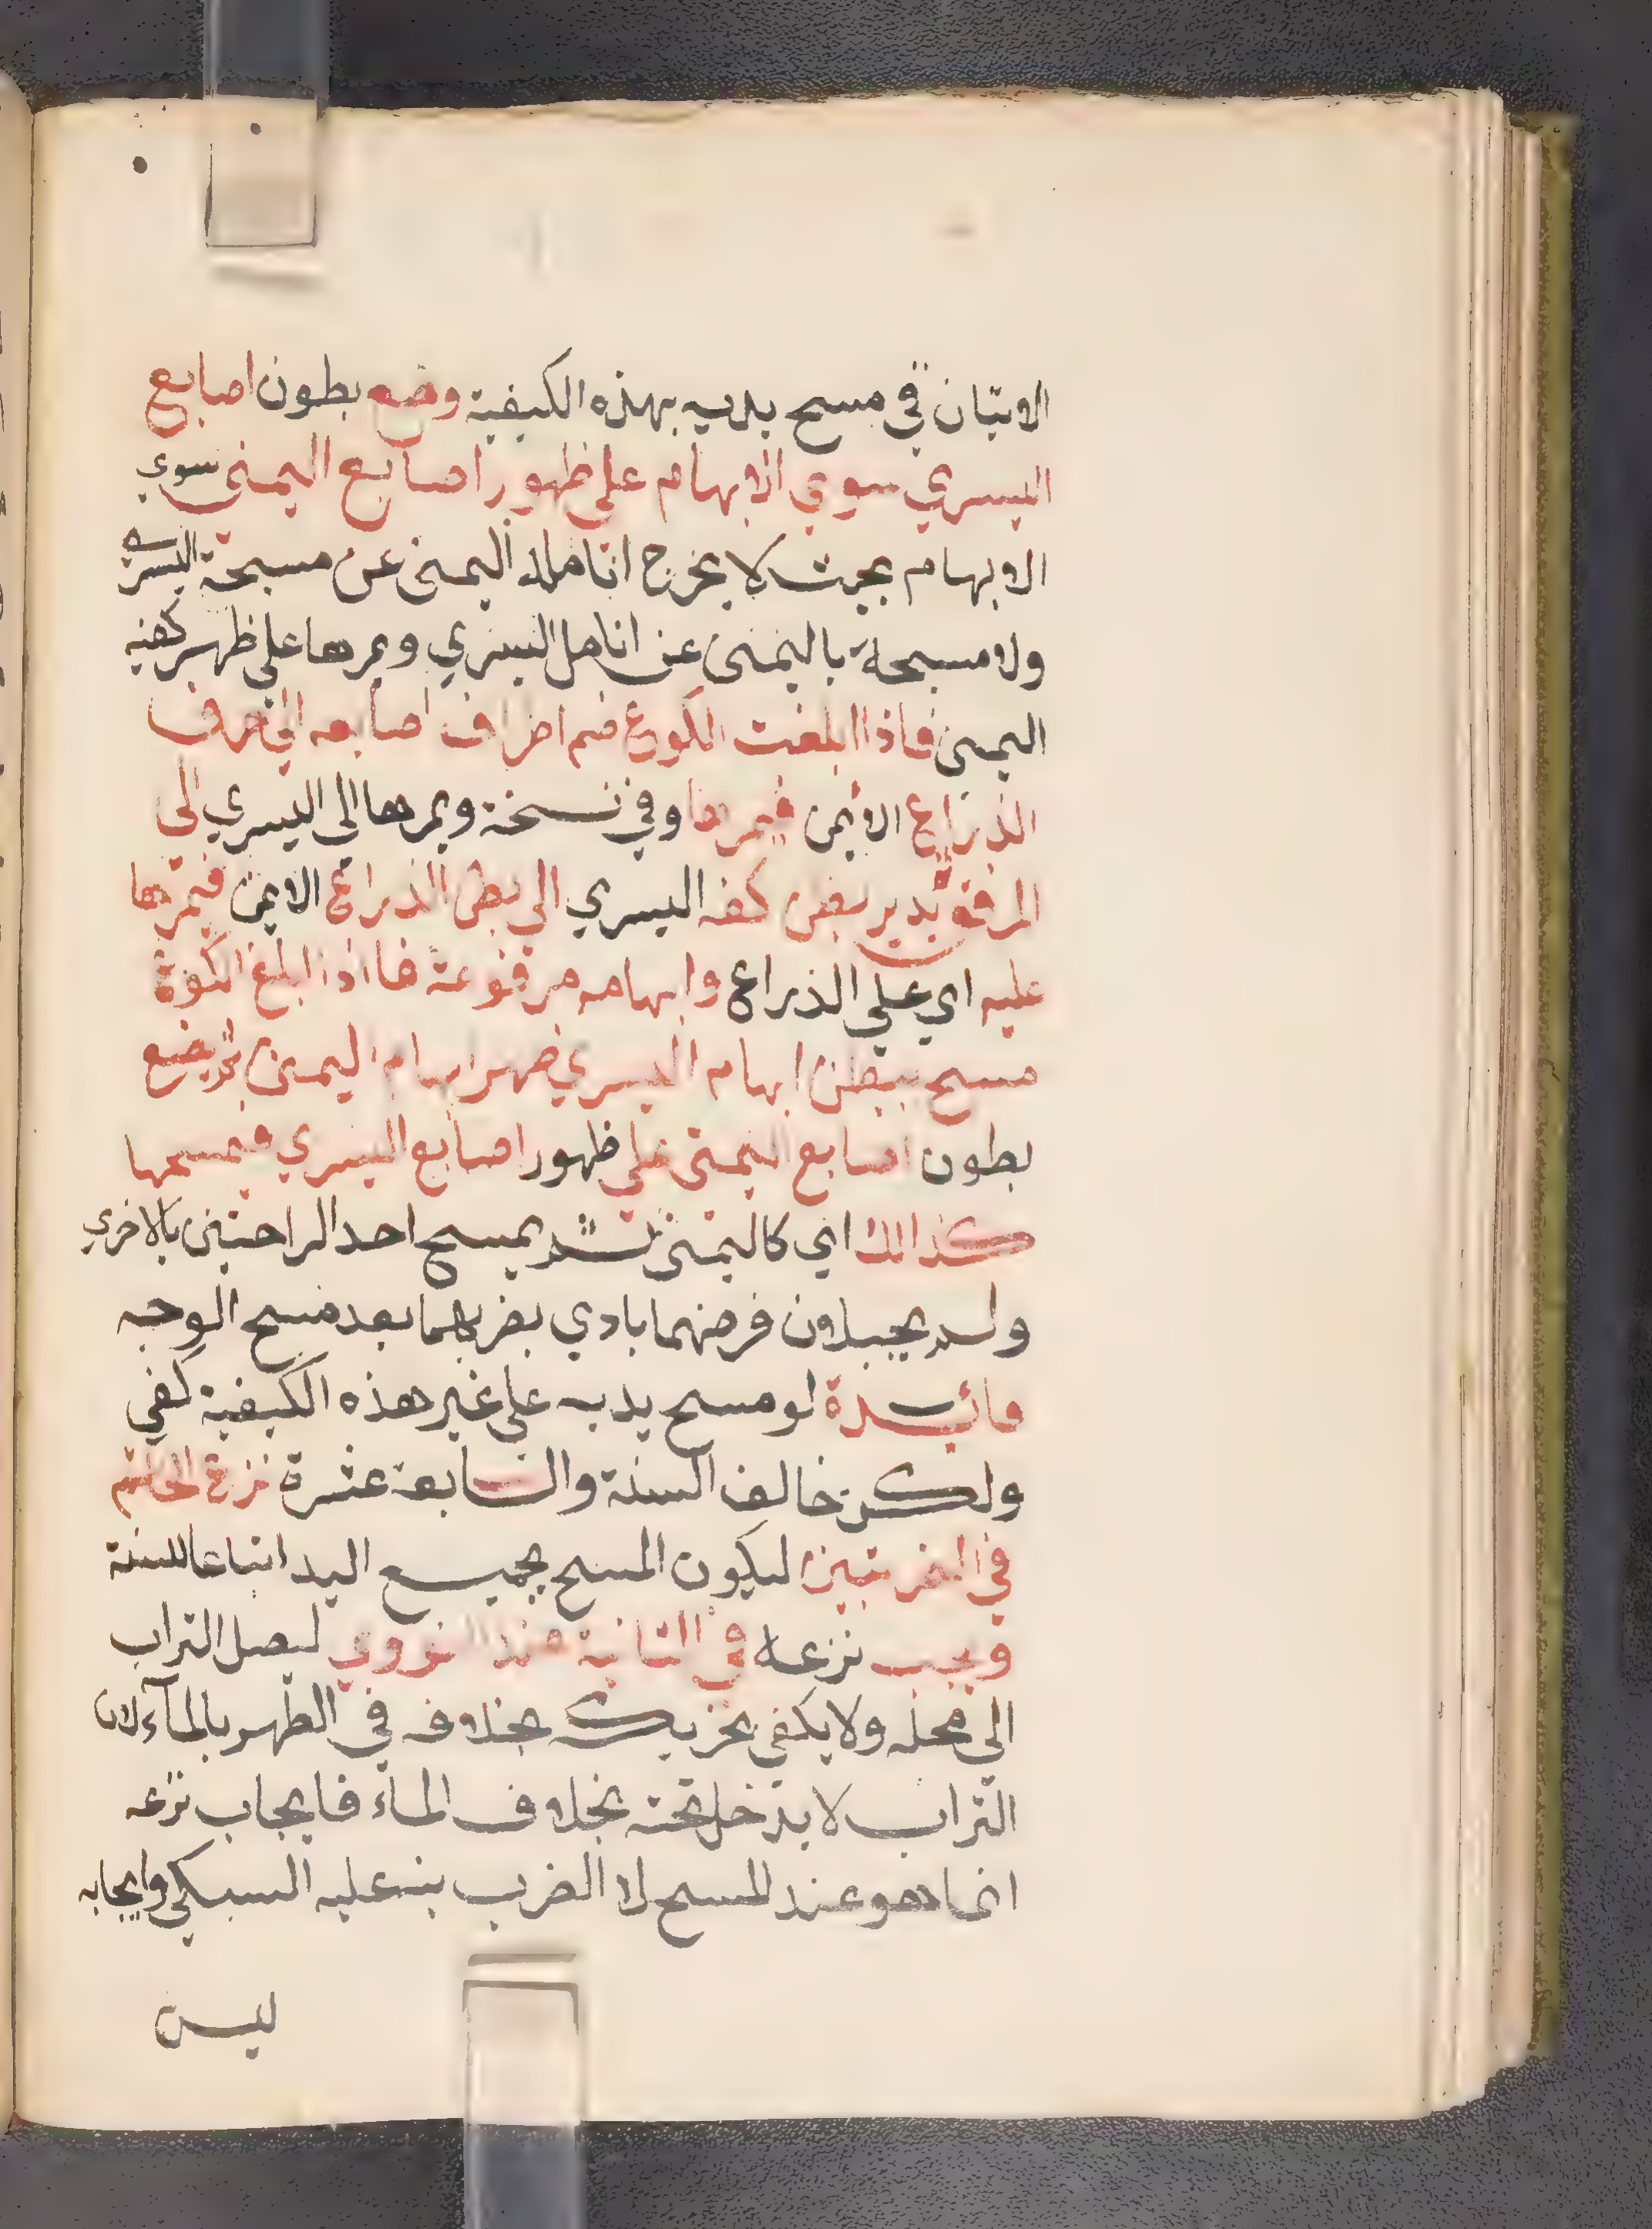 الاتيان في مسح يديه بهذه الكيفية وضع بطون اصابع
اليسري سوي الابهام علي ظهور اصابع اليمنى سوي
الابهام بحيث لا يخرج انامله اليمنى عن مسبحة اليسرى
ولا مسبحة باليمنى عن انامل اليسري ويمرها علي ظهر كفيه
اليمنى فاذا ابلغت الكوع ضم اطراف اصابعه الي حرف
الذراع الايمن فيمرها وفي نسخة ويمرها الي اليسري الي
المرفق ثم يدير بطن كفه اليسري الي بطن الذراع الايمن فيمرها
عليه اي علي الذراع وابهامه مرفوعة فااذا ابلغ الكوع
مسح ببطن ابهام اليسري ضهر ابهام اليمنى ثم يضع
بطون اصابع اليمنى علي ظهور اصابع اليسري فيمسحها
كذالك اي كاليمنى ثم يمسح احد الراحتين بالاخري
ولم يجب لان فرضهما بادي بضربهما بعد مسح الوجه
فائدة لو مسح يديه علي غير هذه الكيفية كفي
ولكن خالف السنة والسابعة عشرة نزع الخاتم
في الضربتين ليكون المسح بجميع اليد اتباعا للسنة
ويجب نزعه في الثانية عند النووي ليصل التراب
الي محله ولا يكفي تحريكه بخلافه في الطهر بالمآء لان
التراب لا يدخل تحته بخلاف الماء فايجاب نزعه
انما هو عند المسح لا الضرب نبه عليه السبكي وايجابه
ليس